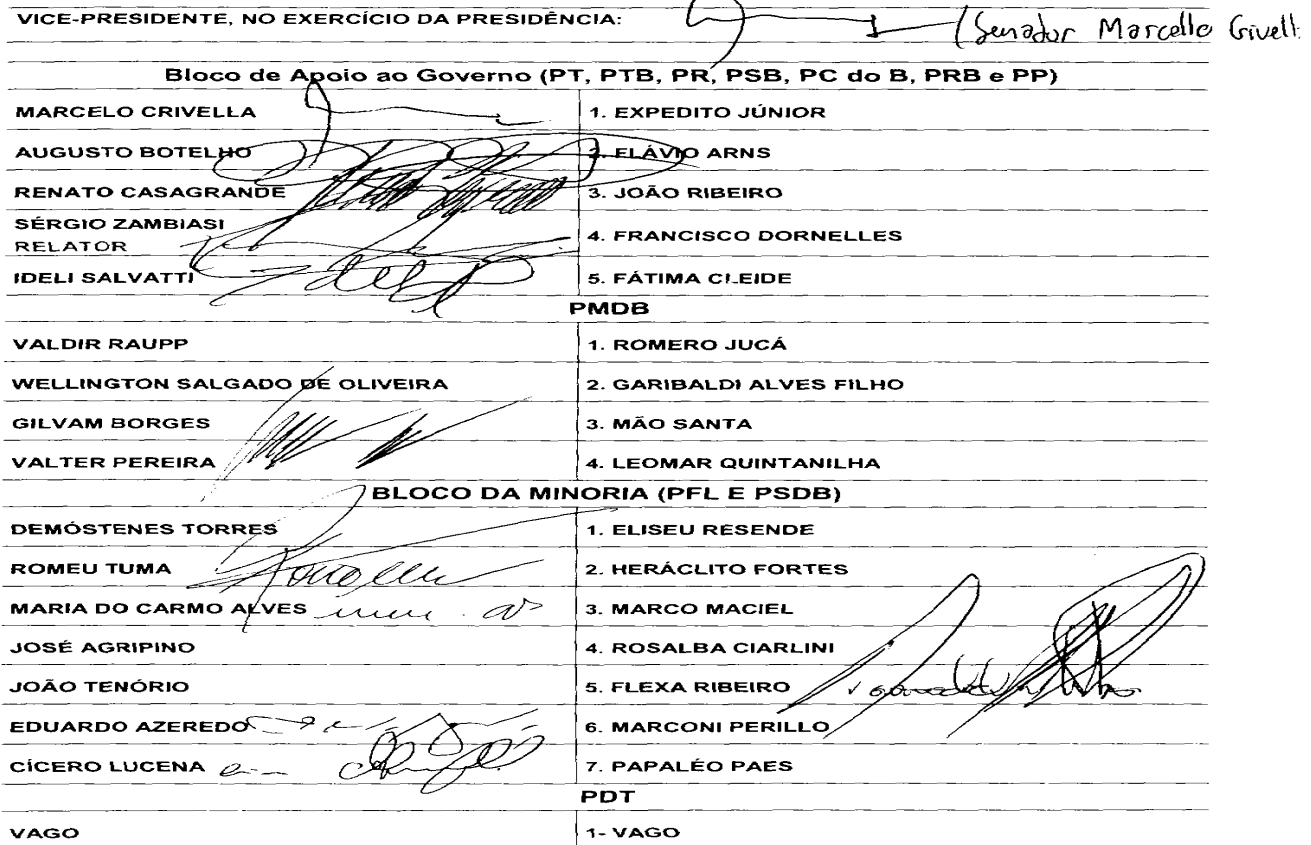 VICE-PRESIDENTE, NO EXERCÍCIO DA PRESIDÊNCIA: (Senador Marcello Crivell
Bloco de Apoio ao Governo (PT, PTB, PR, PSB, PC do B, PRB e PP)
MARCELO CRIVELLA 1. EXPEDITO JÚNIOR
AUGUSTO BOTELHO 2. FLÁVIO ARNS
RENATO CASAGRANDE 3. JOÃO RIBEIRO
SÉRGIO ZAMBIASI
RELATOR 4. FRANCISCO DORNELLES
IDELI SALVATTI 5. FÁTIMA CLEIDE
PMDB
VALDIR RAUPP 1. ROMERO JUCÁ
WELLINGTON SALGADO DE OLIVEIRA 2. GARIBALDI ALVES FILHO
GILVAM BORGES 3. MÃO SANTA
VALTER PEREIRA 4. LEOMAR QUINTANILHA
BLOCO DA MINORIA (PFL E PSDB)
DEMÓSTENES TORRES 1. ELISEU RESENDE
ROMEU TUMA 2. HERÁCLITO FORTES
MARIA DO CARMO ALVES 3. MARCO MACIEL
JOSÉ AGRIPINO 4. ROSALBA CIARLINI
JOÃO TENÓRIO 5. FLEXA RIBEIRO
EDUARDO AZEREDO 6. MARCONI PERILLO
CÍCERO LUCENA 7. PAPALÉO PAES
PDT
VAGO 1- VAGO